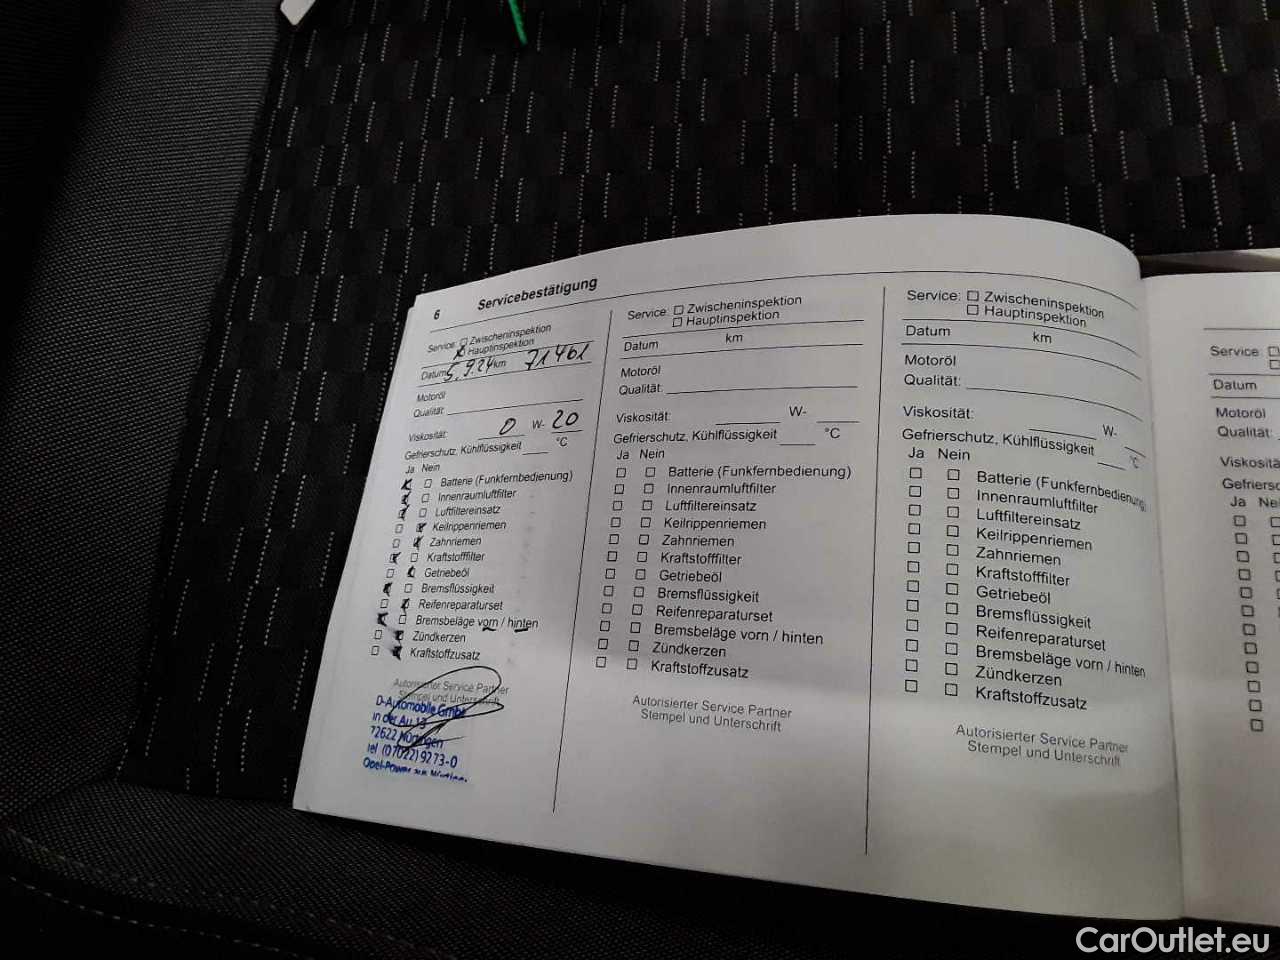 6 Servicebestätigung
Service: Zwischeninspektion
Hauptinspektion
Datum 5.9.24 km 71461
Motoröl
Qualität:
Viskosität: 0 W- 20
Gefrierschutz, Kühlflüssigkeit °C
Ja Nein
Batterie (Funkfernbedienung)
Innenraumluftfilter
Luftfiltereinsatz
Keilrippenriemen
Zahnriemen
Kraftstofffilter
Getriebeöl
Bremsflüssigkeit
Reifenreparaturset
Bremsbeläge vorn / hinten
Zündkerzen
Kraftstoffzusatz
Autorisierter Service Partner
Stempel und Unterschrift
D-Automobile GmbH
in der Au 13
72622 Nürtingen
Tel (07022) 9273-0
Opel-Power
Service: Zwischeninspektion
Hauptinspektion
Datum km
Motoröl
Qualität:
Viskosität: W-
Gefrierschutz, Kühlflüssigkeit °C
Ja Nein
Batterie (Funkfernbedienung)
Innenraumluftfilter
Luftfiltereinsatz
Keilrippenriemen
Zahnriemen
Kraftstofffilter
Getriebeöl
Bremsflüssigkeit
Reifenreparaturset
Bremsbeläge vorn / hinten
Zündkerzen
Kraftstoffzusatz
Autorisierter Service Partner
Stempel und Unterschrift
Service: Zwischeninspektion
Hauptinspektion
Datum km
Motoröl
Qualität:
Viskosität: W-
Gefrierschutz, Kühlflüssigkeit °C
Ja Nein
Batterie (Funkfernbedienung)
Innenraumluftfilter
Luftfiltereinsatz
Keilrippenriemen
Zahnriemen
Kraftstofffilter
Getriebeöl
Bremsflüssigkeit
Reifenreparaturset
Bremsbeläge vorn / hinten
Zündkerzen
Kraftstoffzusatz
Autorisierter Service Partner
Stempel und Unterschrift
Service:
Datum
Motoröl
Qualität:
Viskositä
Gefriersc
Ja Ne
CarOutlet.eu